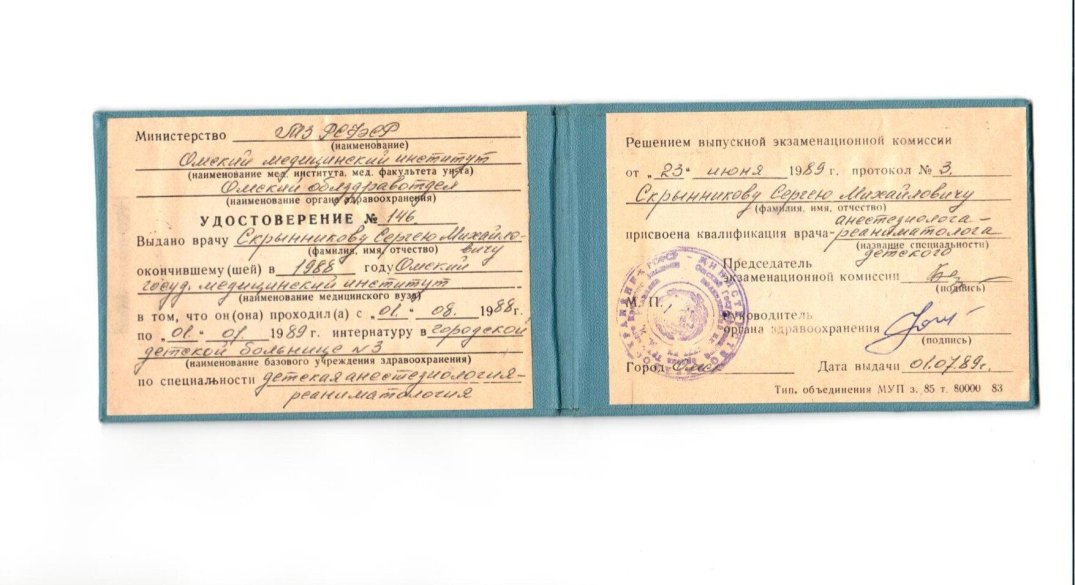 Министерство МЗ РСФСР
(наименование)
Омский медицинский институт
(наименование мед. института, мед. факультета ун-та)
Омский облздравотдел
(наименование органа здравоохранения)
УДОСТОВЕРЕНИЕ № 146
Выдано врачу Скрынникову Сергею Михайло-
вичу
(фамилия, имя, отчество)
окончившему (шей) в 1988 году Омский
госуд. медицинский институт
(наименование медицинского вуза)
в том, что он (она) проходил(а) с „01“ 08. 1988 г.
по „01“ 07. 1989 г. интернатуру в городской
детской больнице №3
(наименование базового учреждения здравоохранения)
по специальности детская анестезиология-
реаниматология
Решением выпускной экзаменационной комиссии
от „23“ июня 1989 г. протокол № 3.
Скрынникову Сергею Михайловичу
(фамилия, имя, отчество)
анестезиолога-
присвоена квалификация врача-реаниматолога
(название специальности)
детского
Председатель
экзаменационной комиссии
(подпись)
М. П.
Руководитель
органа здравоохранения
(подпись)
Город Омск Дата выдачи 01.07.89г.
Тип. объединения МУП з. 85 т. 80000 83